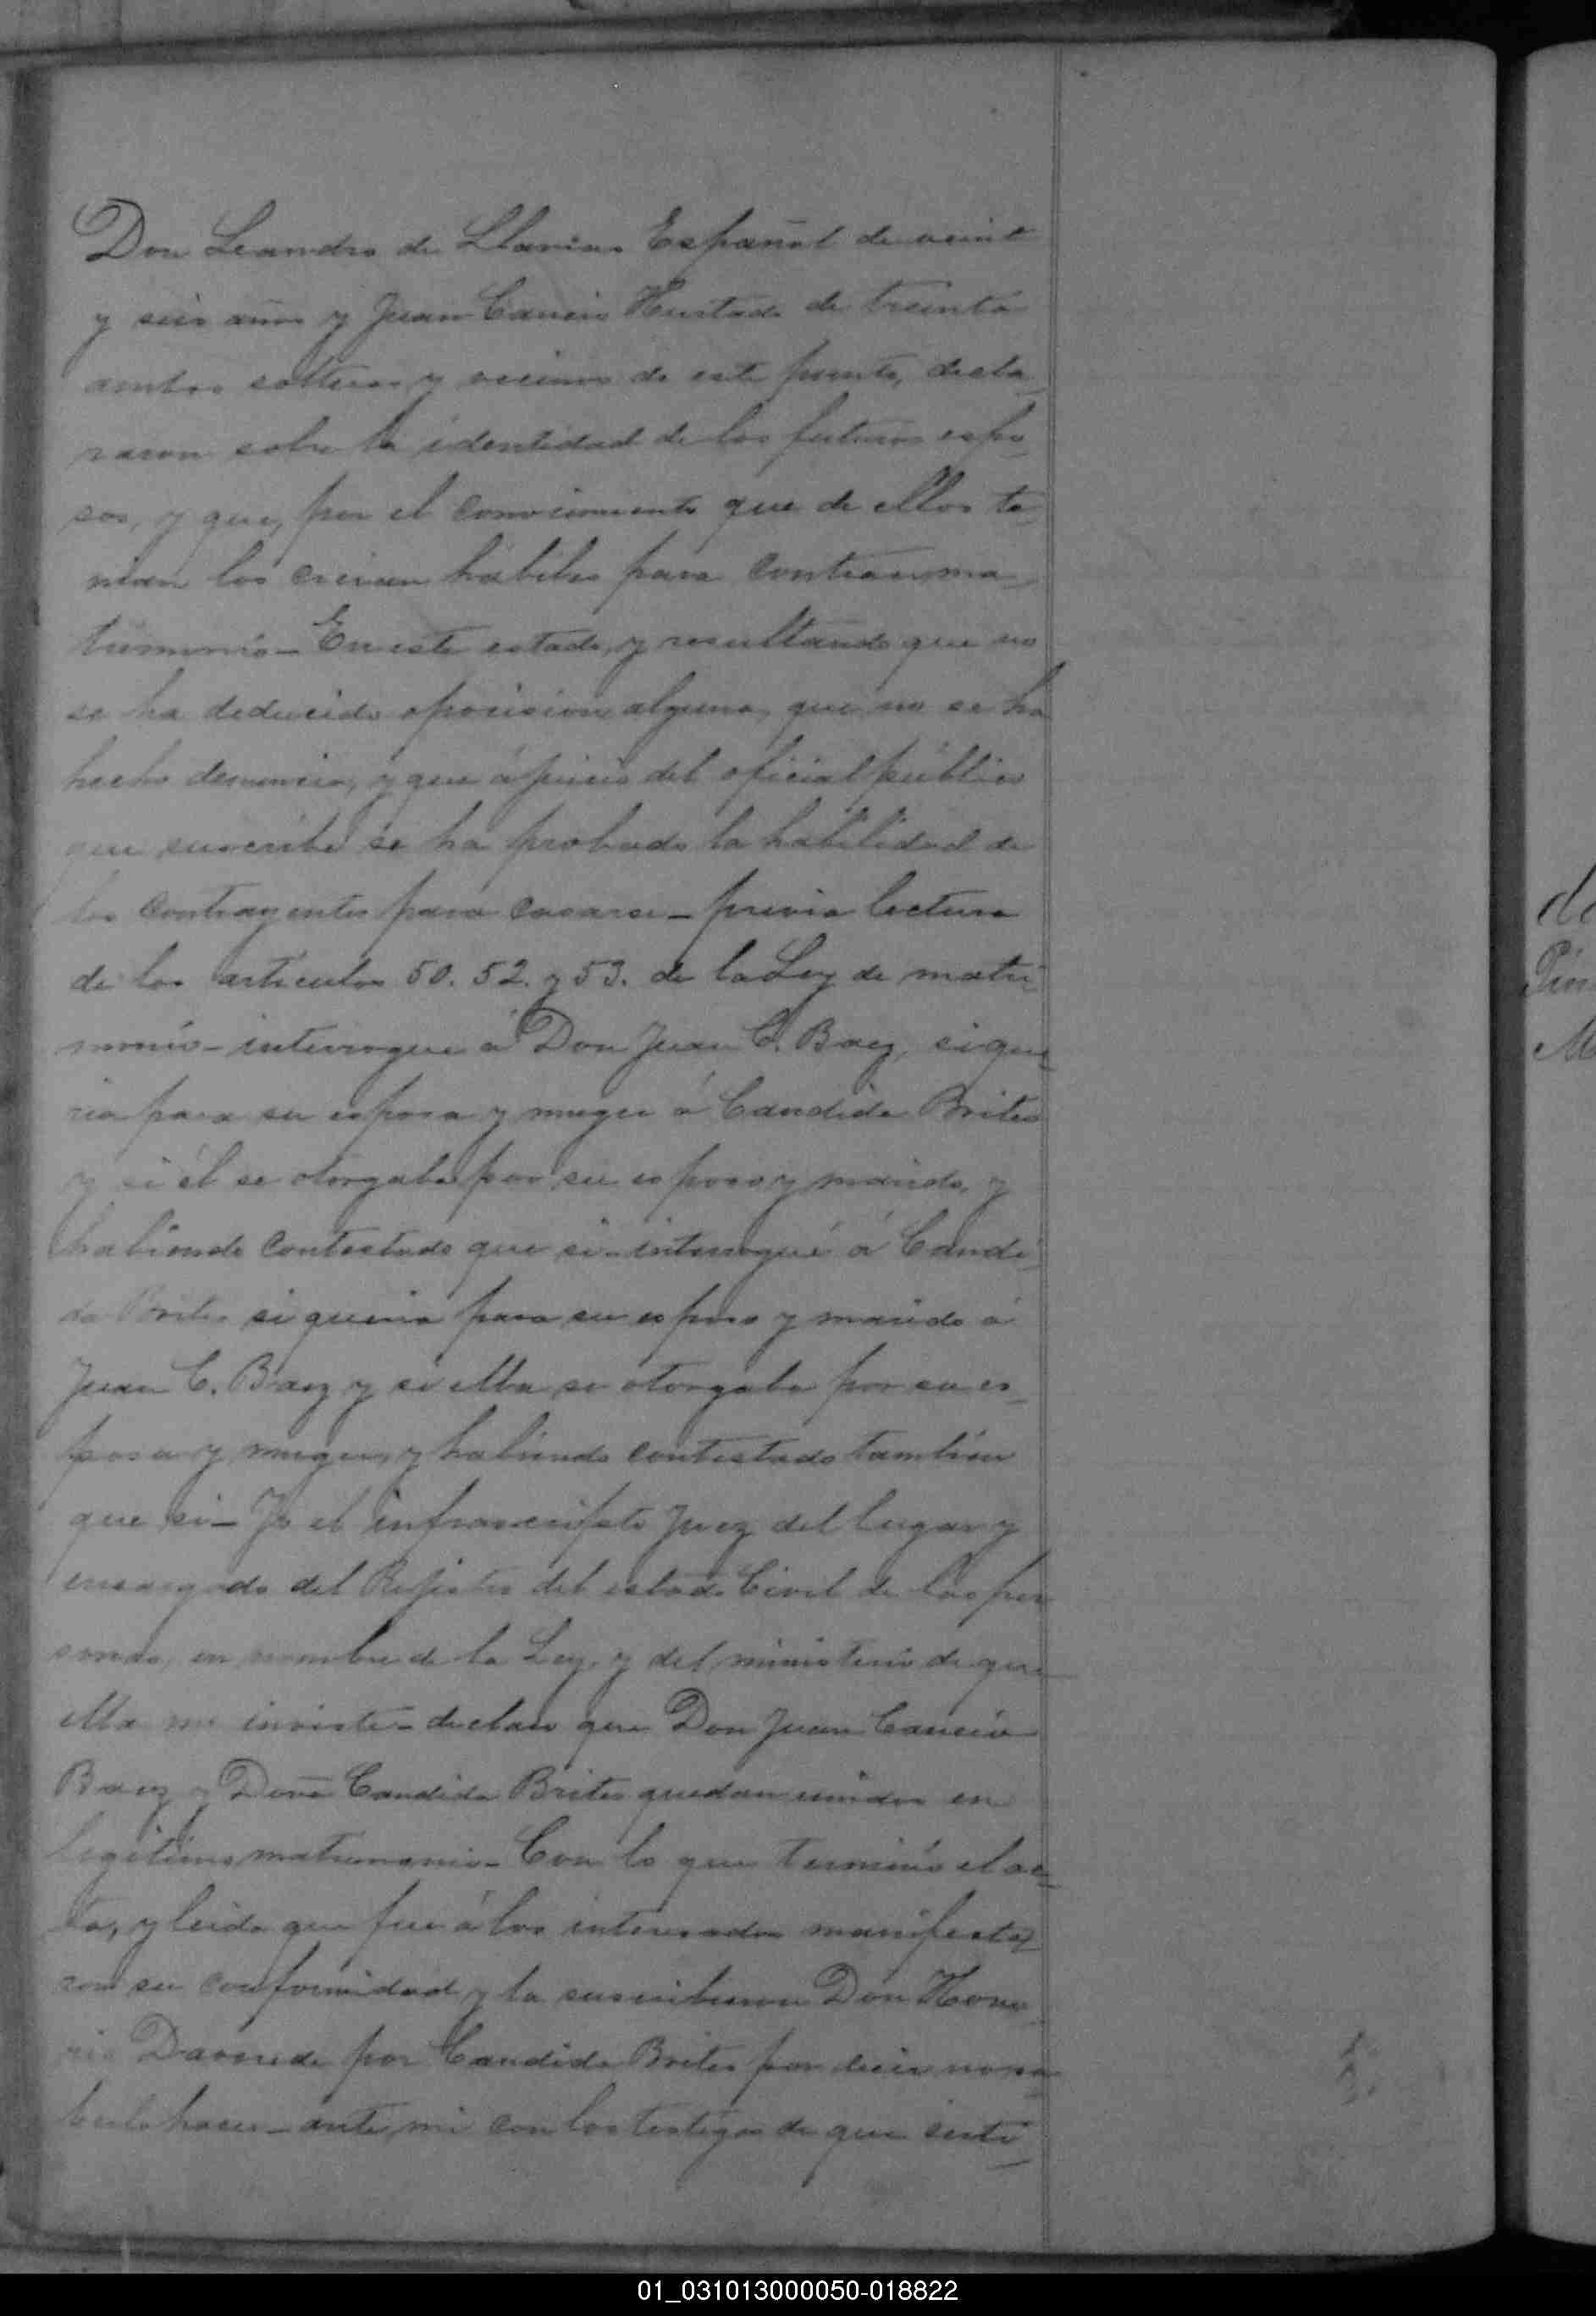 Don Leandro de Llanins Español de veint
y seis años y Juan Cancio Hurtado de treinta
ambos solteros y vecinos de este punto, decla-
raron sobre la identidad de los futuros espo-
sos, y que, por el conocimiento que de ellos te-
nian los creian hábiles para contraer ma-
trimonio - En este estado, y resultando que no
se ha deducido oposicion alguna, que no se ha
hecho denuncia, y que á juicio del oficial público
que suscribe se ha probado la habilidad de
los contrayentes para casarse - previa lectura
de los articulos 50. 52. y 53. de la Ley de matri-
monio - interrogue á Don Juan C. Baez, si que-
ria para su esposa y muger á Candida Brites
y si él se otorgaba por su esposo y marido, y
habiendo contestado que si - interrogué á Candi-
da Brites si queria para su esposo y marido á
Juan C. Baez y si ella se otorgaba por su es-
posa y muger, y habiendo contestado tambien
que si - Yo el infrascripto Juez del lugar y
encargado del Rejistro del estado Civil de las per
sonas, en nombre de la Ley, y del ministerio de que
ella me inviste - declaro que Don Juan Cancio
Baez y Doña Candida Brites quedan unidos en
legitimo matrimonio - Con lo que terminó el ac-
to, y leida que fue á los interesados manifesta-
ron su conformidad y la suscribieron Don Hono-
rio por Candida Brites por decir no sa-
berlo hacer - ante mi con los testigos de que certi-
de
M
01_031013000050-018822